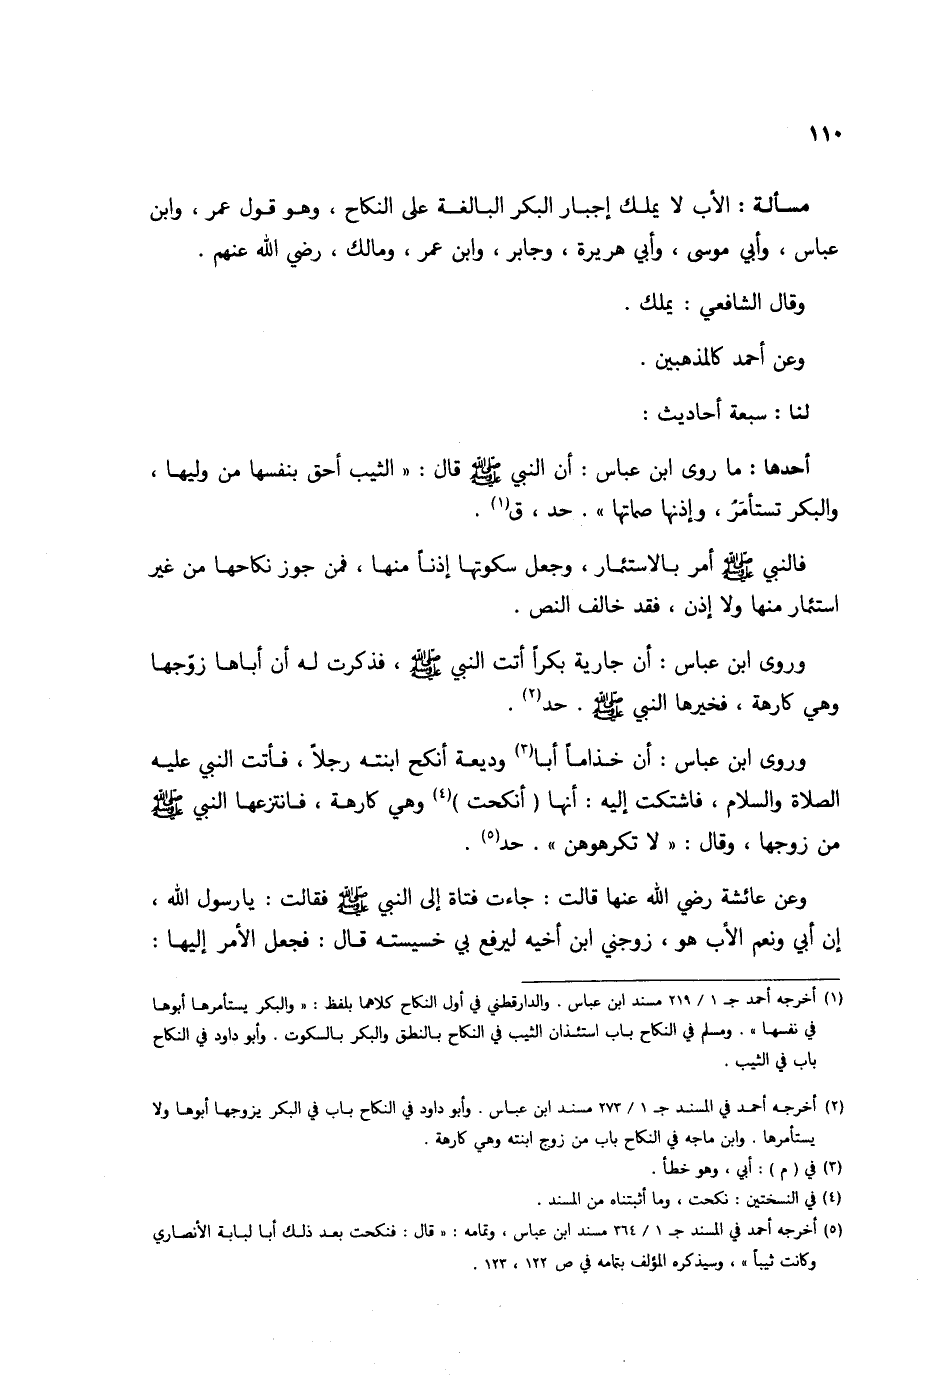 ١١٠
مسألة : الأب لا يملك إجبار البكر البالغة على النكاح ، وهو قول عمر ، وابن
عباس ، وأبي موسى ، وأبي هريرة ، وجابر ، وابن عمر ، ومالك ، رضي الله عنهم .
وقال الشافعي : يملك .
وعن أحمد كالمذهبين .
لنا : سبعة أحاديث :
أحدها : ما روى ابن عباس : أن النبي ﷺ قال : « الثيب أحق بنفسها من وليها ،
والبكر تستأمَرُ ، وإذنها صماتها » . حد ، ق(١) .
فالنبي ﷺ أمر بالاستئمار ، وجعل سكوتها إذناً منها ، فمن جوز نكاحها من غير
استئمار منها ولا إذن ، فقد خالف النص .
وروى ابن عباس : أن جارية بكراً أتت النبي ﷺ ، فذكرت له أن أباها زوّجها
وهي كارهة ، فخيرها النبي ﷺ . حد(٢) .
وروى ابن عباس : أن خذاماً أبا(٣) وديعة أنكح ابنته رجلاً ، فأتت النبي عليه
الصلاة والسلام ، فاشتكت إليه : أنها ( أنكحت )(٤) وهي كارهة ، فانتزعها النبي ﷺ
من زوجها ، وقال : « لا تكرهوهن » . حد(٥) .
وعن عائشة رضي الله عنها قالت : جاءت فتاة إلى النبي ﷺ فقالت : يارسول الله ،
إن أبي ونعم الأب هو ، زوجني ابن أخيه ليرفع بي خسيسته قال : فجعل الأمر إليها :
(١) أخرجه أحمد جـ ١ / ٢١٩ مسند ابن عباس . والدارقطني في أول النكاح كلاهما بلفظ : « والبكر يستأمرها أبوها
في نفسها » . ومسلم في النكاح باب استئذان الثيب في النكاح بالنطق والبكر بالسكوت . وأبو داود في النكاح
باب في الثيب .
(٢) أخرجه أحمد في المسند جـ ١ / ٢٧٣ مسند ابن عباس . وأبو داود في النكاح باب في البكر يزوجها أبوها ولا
يستأمرها . وابن ماجه في النكاح باب من زوج ابنته وهي كارهة .
(٣) في ( م ) : أبي ، وهو خطأ .
(٤) في النسختين : نكحت ، وما أثبتناه من المسند .
(٥) أخرجه أحمد في المسند جـ ١ / ٣٦٤ مسند ابن عباس ، وتمامه : « قال : فنكحت بعد ذلك أبا لبابة الأنصاري
وكانت ثيباً » ، وسيذكره المؤلف بتمامه في ص ١٢٢ ، ١٢٣ .